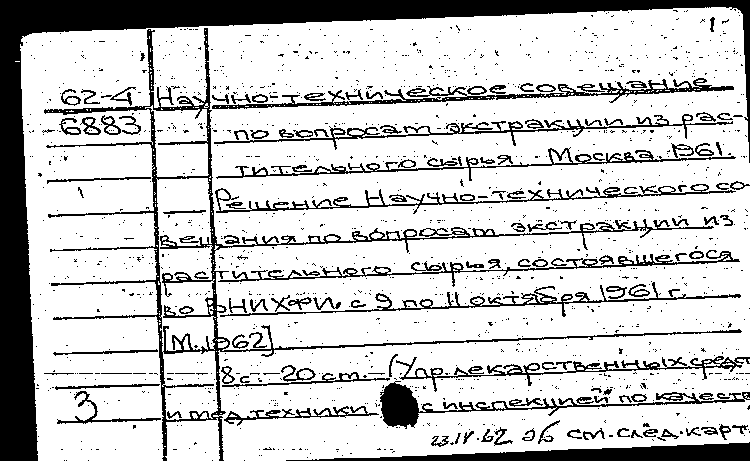 1-
62-4 Научно-техническое совещание
6883 по вопросам экстракции из рас-
тительного сырья. Москва. 1961.
Решение Научно-технического со-
вещания по вопросам экстракции из
растительного сырья, состоявшегося
во ВНИХФИ. с 9 по 11 октября 1961 г.
[М., 1962].
8 с. 20 см. (Упр. лекарственных средст
3 и мед. техники с инспекцией по качеств
23.IV.62 см. след. карт.